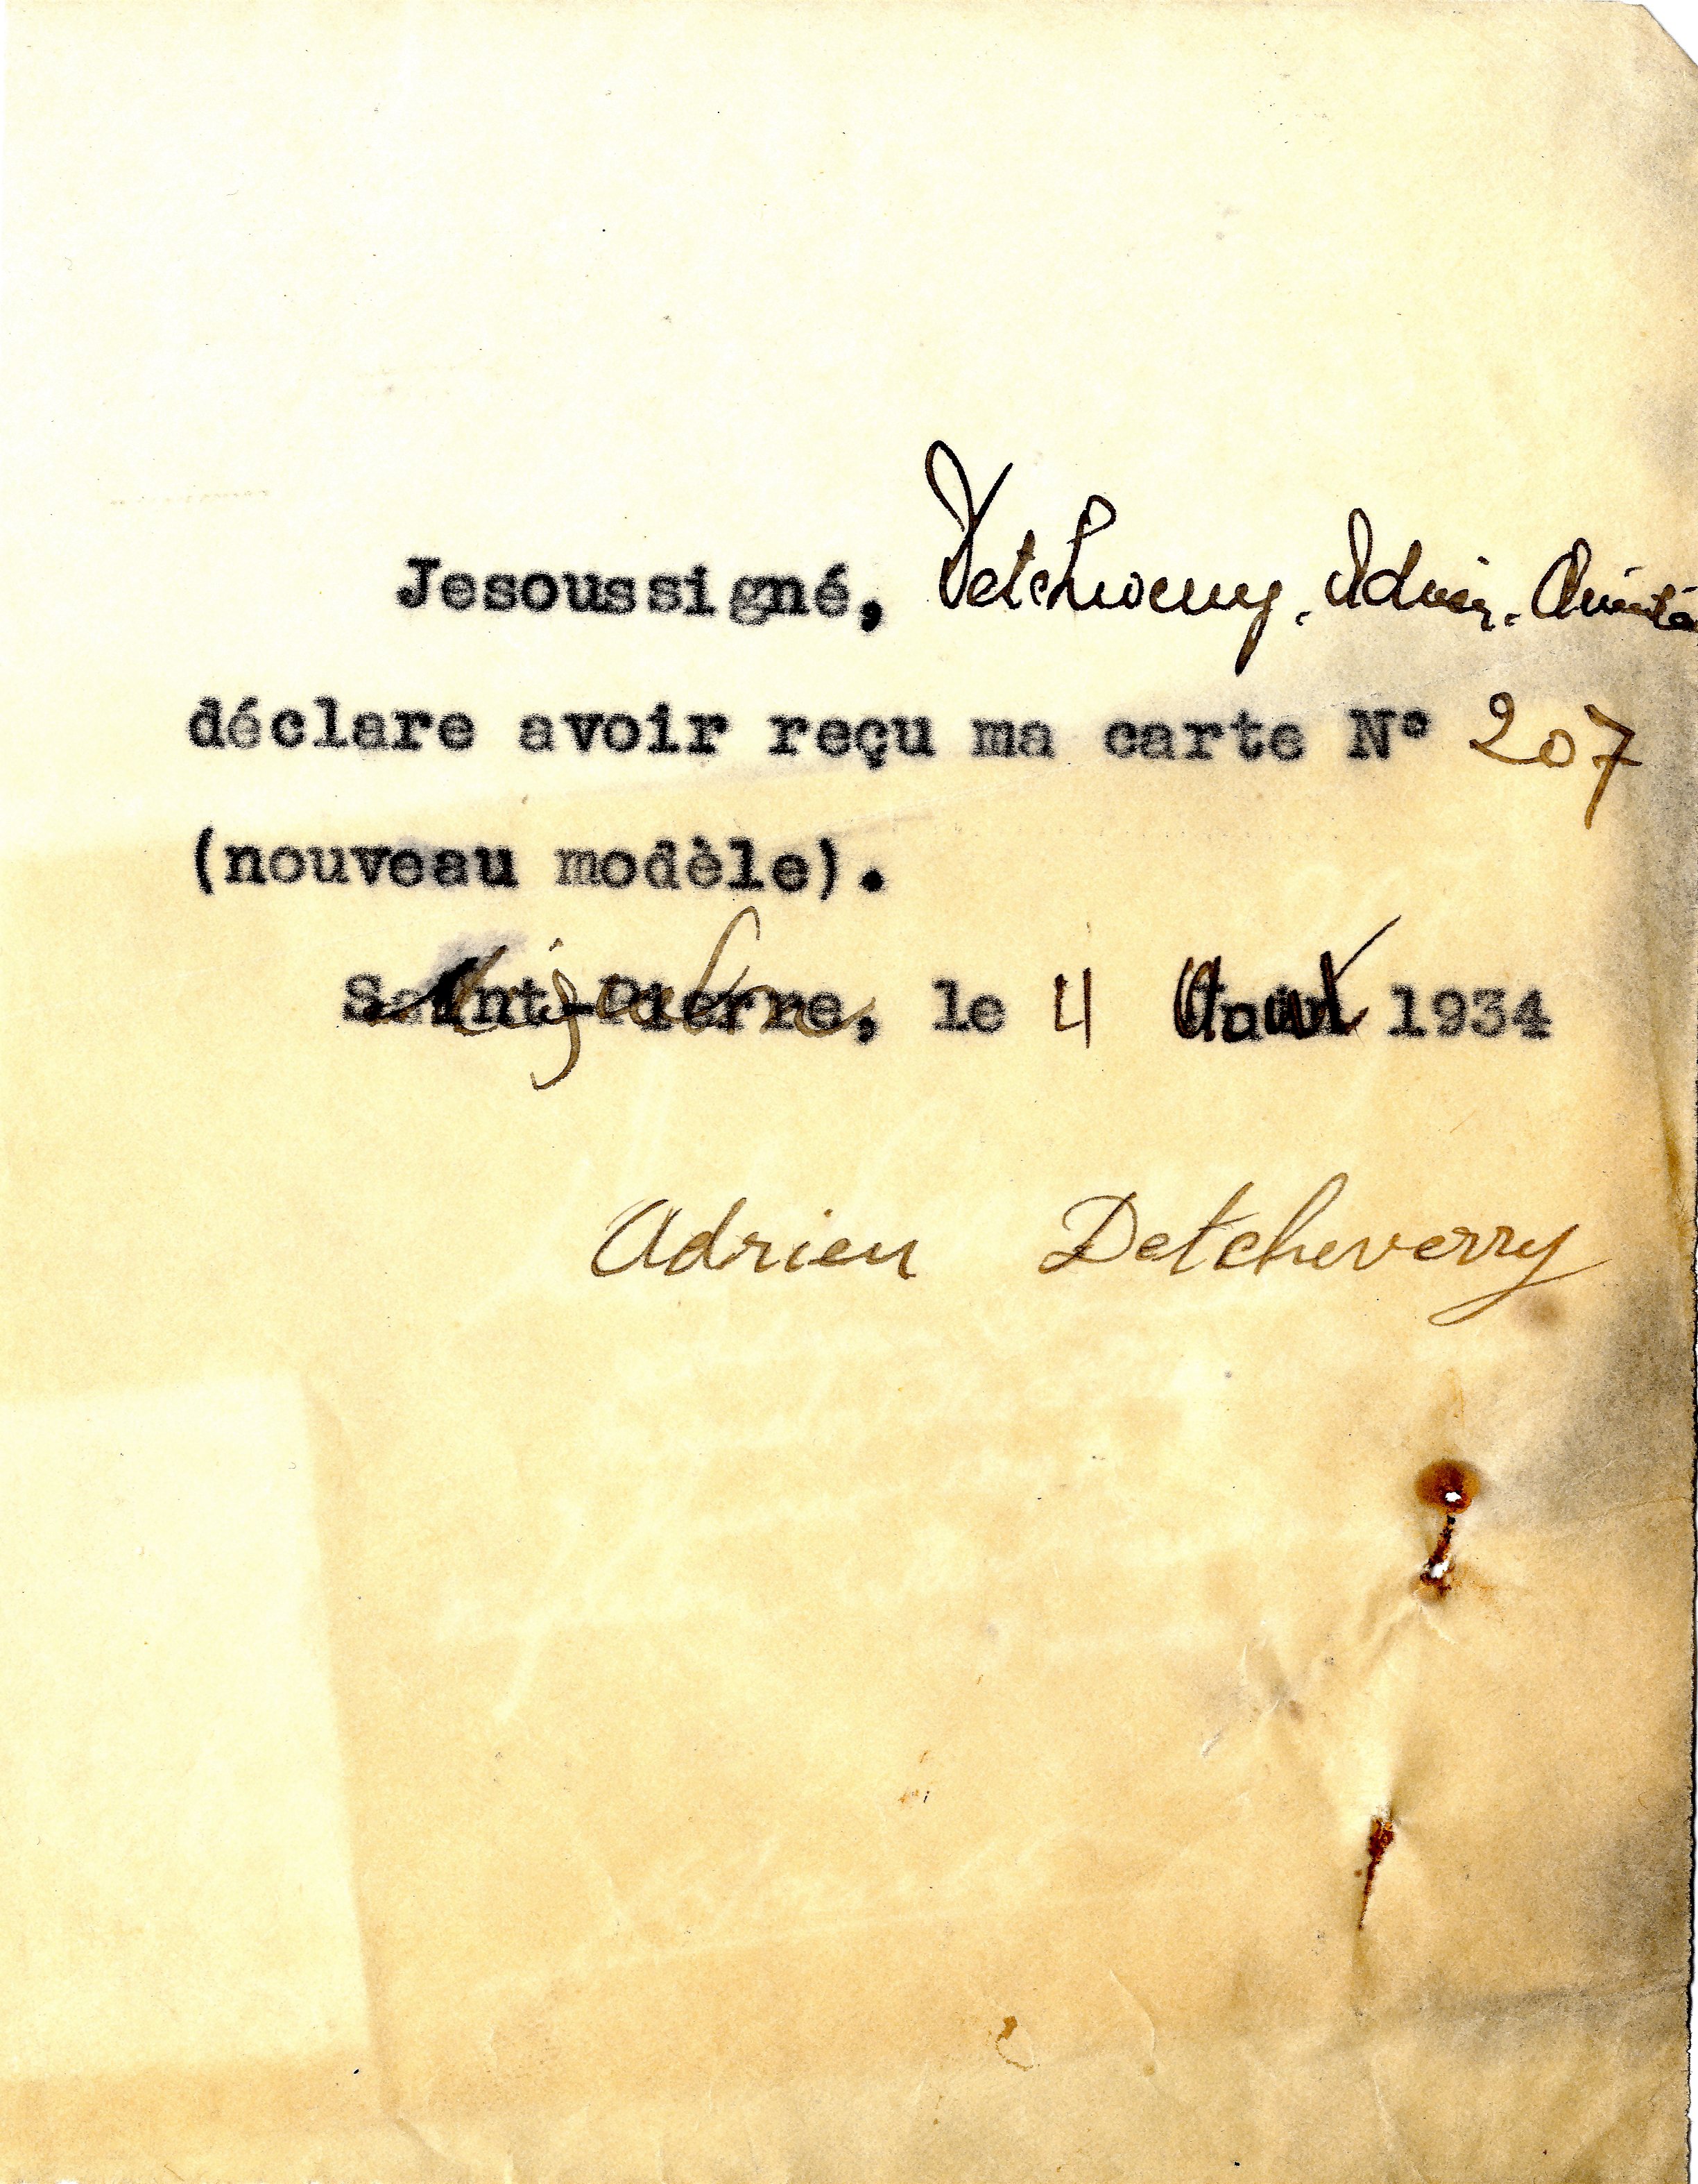 Jesoussigné, Detcheverry. Adrien.
déclare avoir reçu ma carte N° 207
(nouveau modèle).
Saint-Pierre, le 4 Aout 1934
Adrien Detcheverry